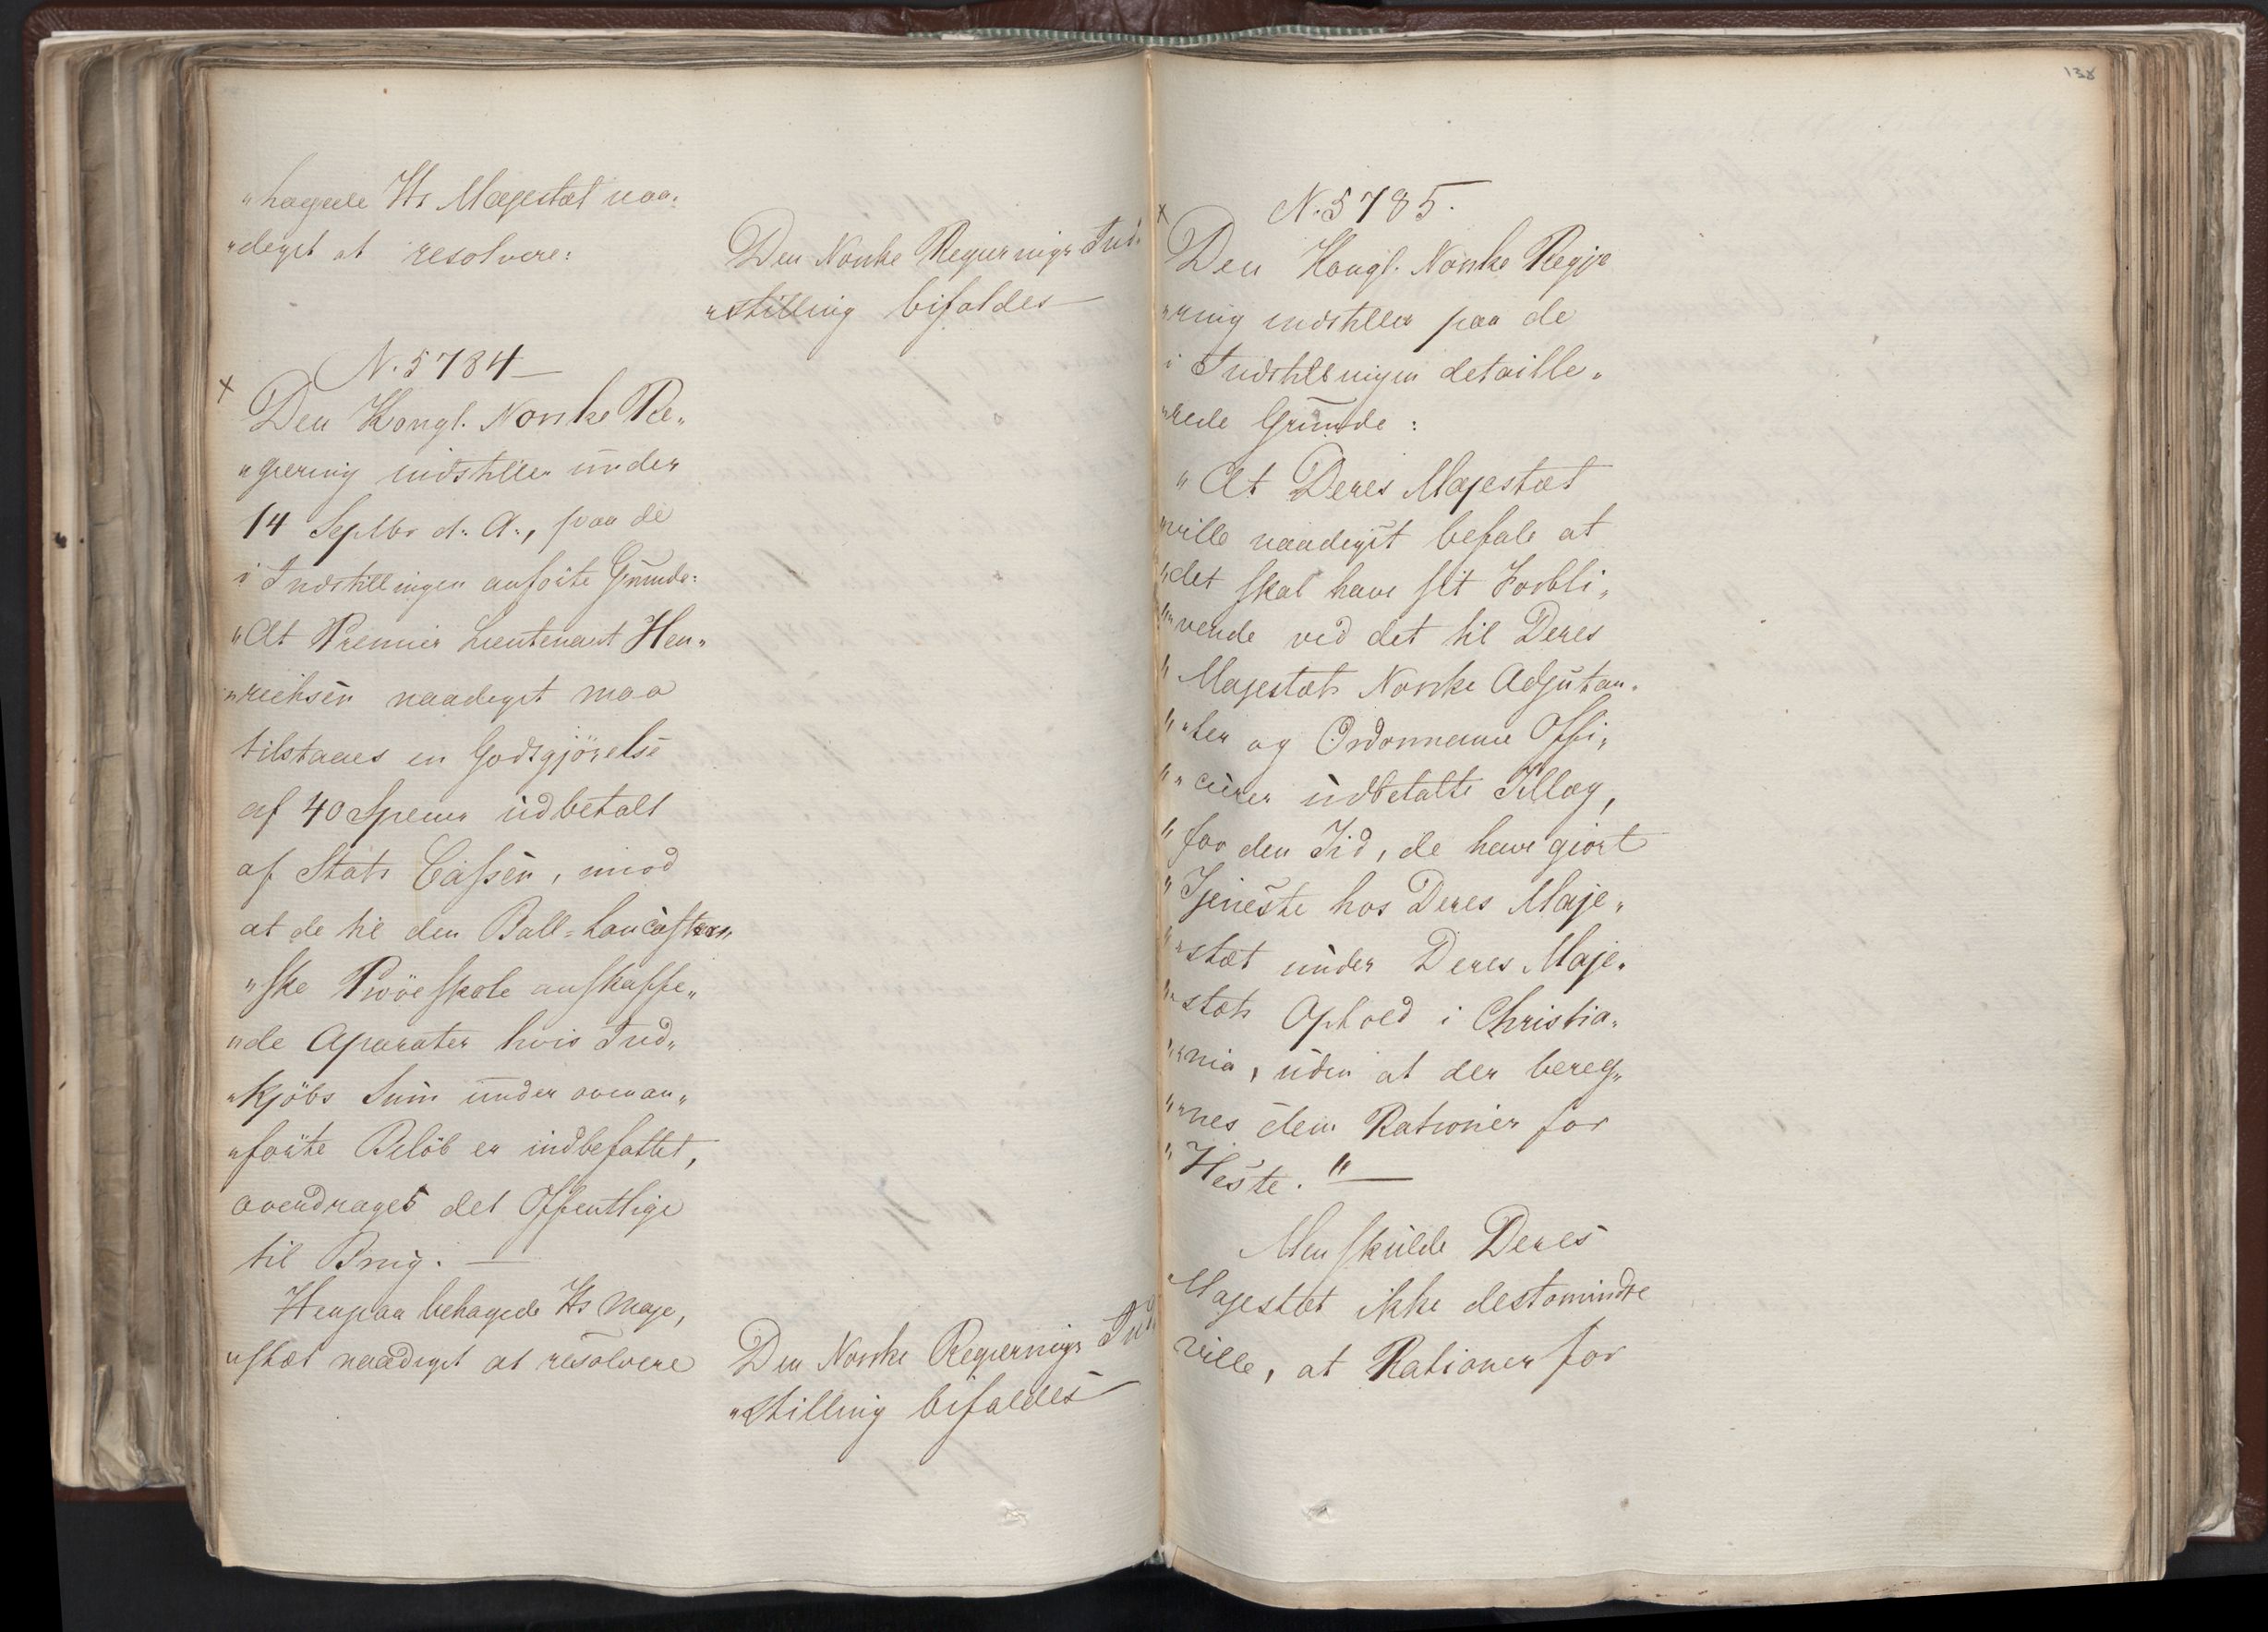 „hagede Hs Majestæt naa„
„digst at resolvere:
Den Norske Regjerings Ind„
„stilling bifaldes
N. 5784
x
Den Kongl. Norske Re„
„gjering indstiller under
14 Septbr d. A., paa de
i Indstillingen anførte Grunde:
„At Premier Lieutenant Hen„
„richsen naadigst maa
tilstaaes en Godtgjörelse
af 40 Specier udbetalt
af Stats Cassen, imod
at de til den Ball-Lancastern„
„ske Pröveskole anskaffe„
„de Aparater hvis Ind„
„kjöbs Sum under ovenan„
„förte Belöb er indbefattet,
overdrages det Offentlige
til Brug. —
Herpaa behagede Hs Maje„
„stæt naadigst at resolvere
Den Norske Regjerings Ind„
„stilling bifaldes
138
x
N. 5785.
Den Kongl. Norske Regje
„ring indstiller paa de
i Indstillingen detaille„
„rede Grunde:
„At Deres Majestæt
„ville naadigst befale at
„det skal have sit Forbli„
„„vende ved det til Deres
„Majestæts Norske Adjutan„
„„ter og Ordonnance Offi„
„„cierer udbetalte Tillæg,
„for den Tid, de have giort
„Tjeneste hos Deres Maje„
„„stæt under Deres Maje„
„„stæts Ophold i Christia„
„„nia, uden at der bereg„
„„nes dem Rationer for
„Heste." —
Men skulde Deres
Majestæt ikke destomindre
ville, at Rationer for